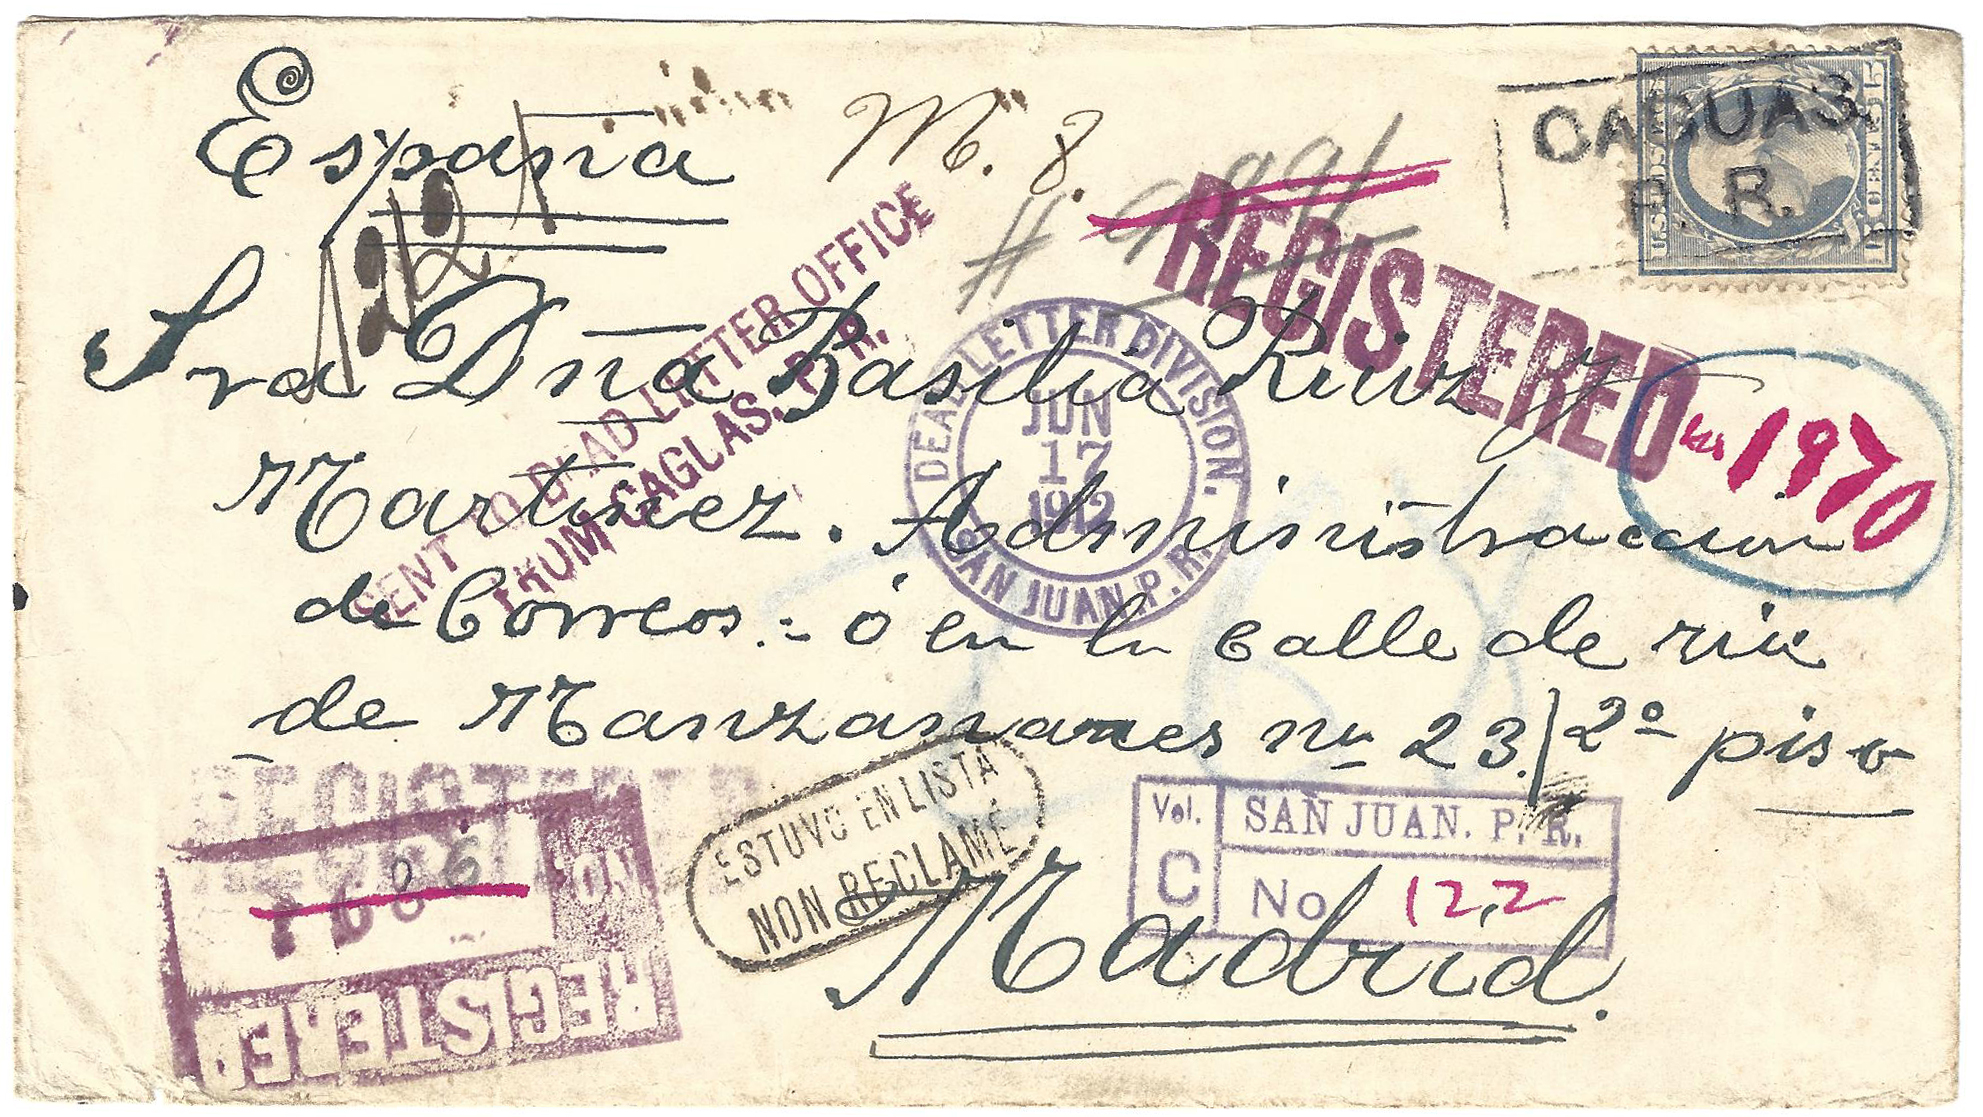 España
M. 8.
CAGUAS.
P. R.
U.S. POSTAGE
REGISTERED
SENT TO DEAD LETTER OFFICE
FROM CAGUAS, P. R.
Sra Dña Basilia Ruiz y
1970
DEAD LETTER DIVISION,
JUN
17
1912
SAN JUAN, P. R.
Martinez. Administracion
de Correos.= ó en la calle de
de Manzanares nº 23./2º piso
REGISTERED
ESTUVO EN LISTA
NON RECLAMÉ
Vol.
C
SAN JUAN. P. R.
No 122
Madrid.
NO.
REGISTERED